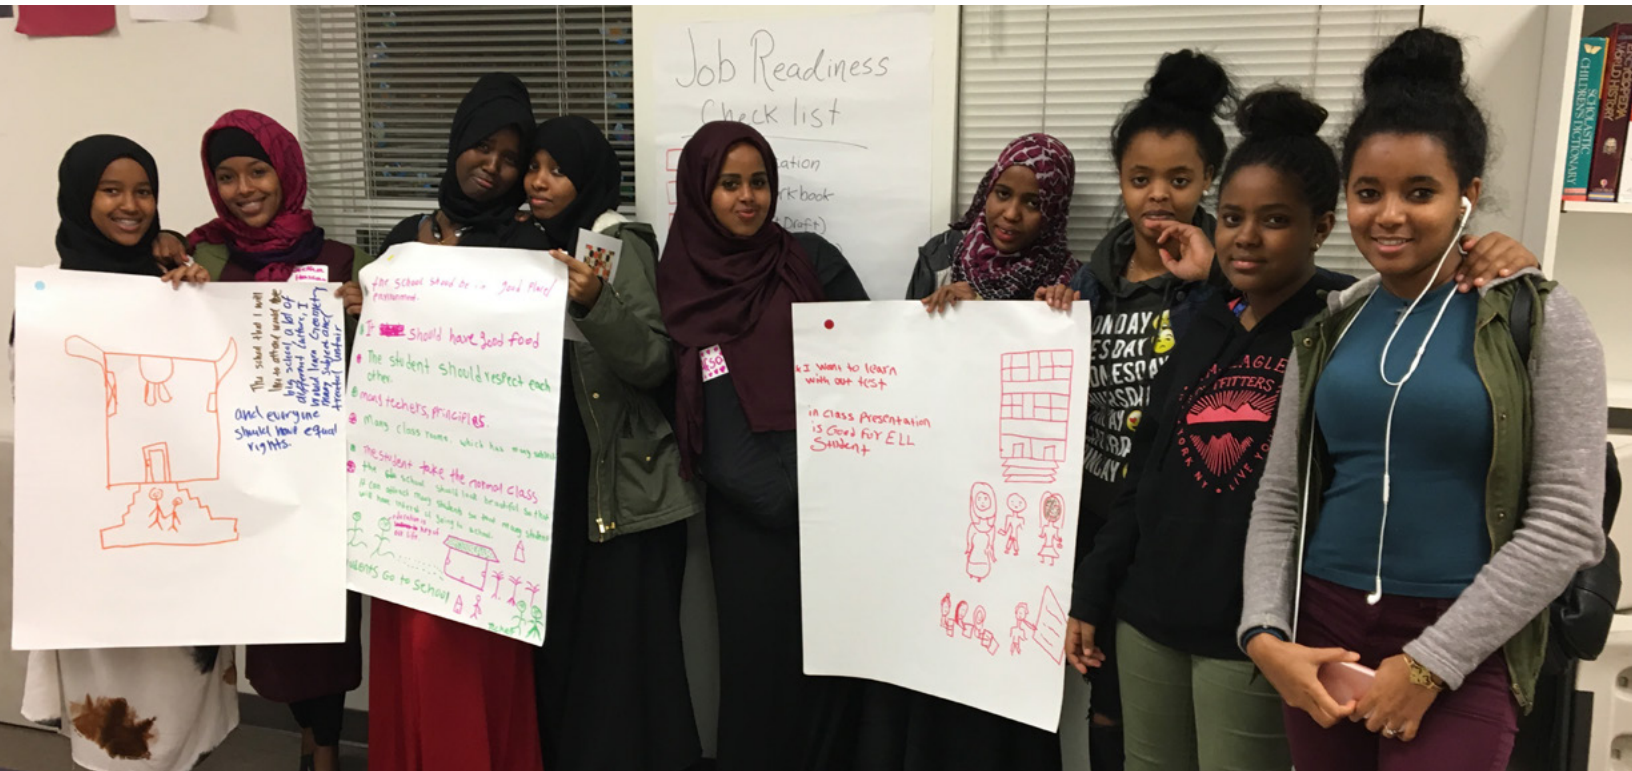 Job Readiness
Check list
ation
rkbook
Draft)
SCHOLASTIC
CHILDREN'S DICTIONARY
WORLD HISTORY
The school that I will
like to attend would be
big school, a lot of
different culture, I
would learn Geogetry
many subject and
and everyone
should have equal
rights.
for school shoud be in good place/
environment.
It should have good food
The student should respect each
other.
many techers, principles.
Many class rooms. which has many
The student take the normal class
the school should look beautiful so that
it can attract many students so that many student
will have interest of going to school.
key of
our life
udents Go to School
I want to learn
with out test
in class presentation
is Good for ELL
Student
ONDAY
ESDAY
NESDAY
URSDAY
AY
RDA
NDAY
EAGLE
TFITTERS
YORK NY • LIVE YOU